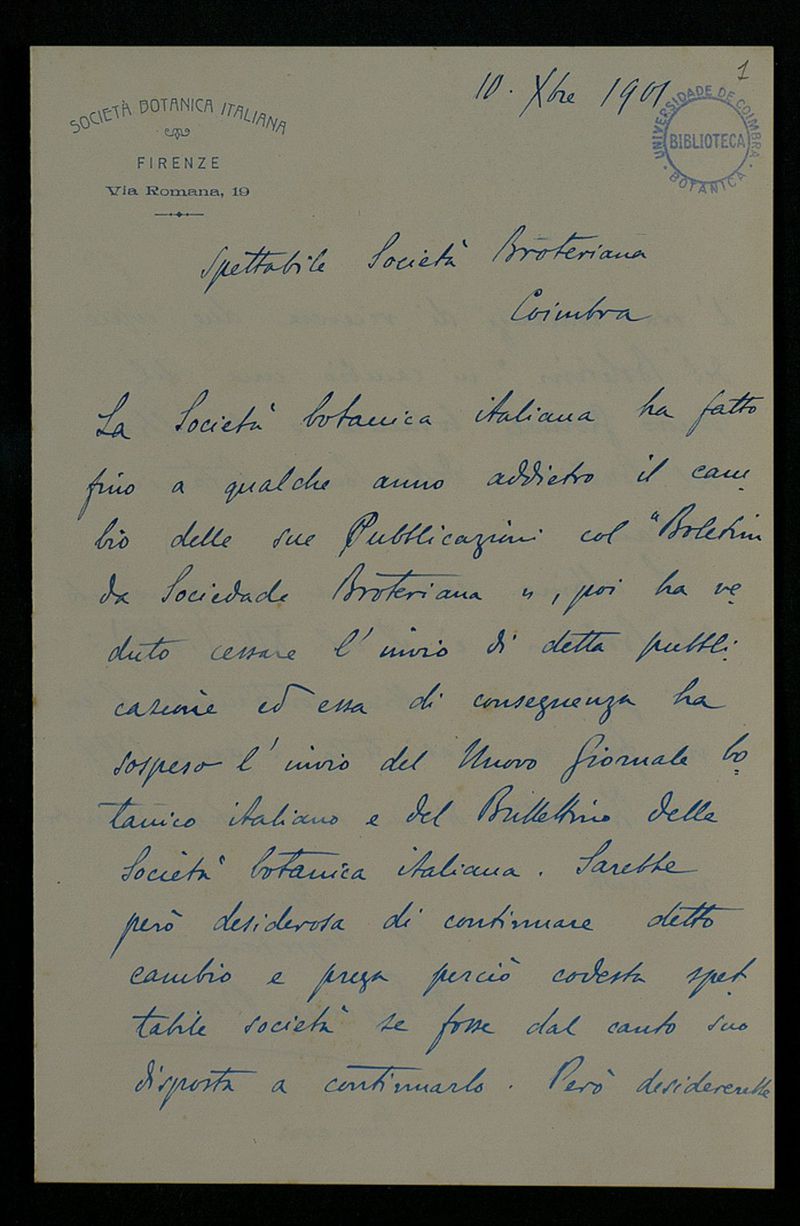 1
10. Xbre 1901
SOCIETÀ BOTANICA ITALIANA
FIRENZE
Via Romana, 19
UNIVERSIDADE DE COIMBRA
BIBLIOTECA
BOTANICA
Spettabile Società Broteriana
Coimbra
La Società botanica italiana ha fatto
fino a qualche anno addietro il cam-
bio delle sue Pubblicazioni col "Boletim
da Sociedade Broteriana", poi ha ve-
duto cessare l'invio di detta pubbli-
cazione ed essa di conseguenza ha
sospeso l'invio del Nuovo Giornale bo-
tanico italiano e del Bullettino della
Società botanica italiana. Sarebbe
però desiderosa di continuare detto
cambio e prega perciò codesta spet-
tabile società se fosse dal canto suo
disposta a continuarlo. Però desidererebbe